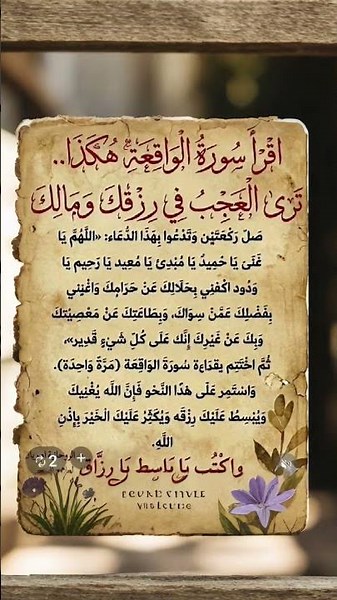 اقْرَأْ سُورَةُ الْوَاقِعَةِ هُكَذَا..
تَرَى الْعَجْبُ فِي رِزْقَكَ وَمَالِكَ
صَلِّ رَكْعَتَيْنِ وَتَدْعُوا بِهَذَا الدُّعَاءِ: «اللَّهُمَّ يَا
غَنَىُّ يَا حَمِيدُ يَا مُبْدِئُ يَا مُعِيد يَا رَحِيم يَا
وَدُود اكْفِنِي بِحَلَالِكَ عَنْ حَرَامِكَ وَاغْنِنِي
بِفَضْلِكَ عَمَّنْ سِوَاكَ، وَبِطَاعَتِكَ عَنْ مَعْصِيَتِكَ
وَبِكَ عَنْ غَيْرِكَ إِنَّكَ عَلَى كُلِّ شَيْءٍ قَدِير»،
ثُمَّ اخْتَتِم بِقِرَاءَةِ سُورَةِ الْوَاقِعَة (مَرَّةً وَاحِدَة).
وَاسْتَمِر عَلَى هَذَا النَّحْوِ فَإِنَّ اللَّه يُغْنِيكَ
وَيُبْسِطُ عَلَيْكَ رِزْقَه وَيُكَثِّرُ عَلَيْكَ الْخَيْرَ بِإِذْنِ
اللَّهِ.
وَاكْتُب يَا بَاسِط يَا رِزَّاق
2